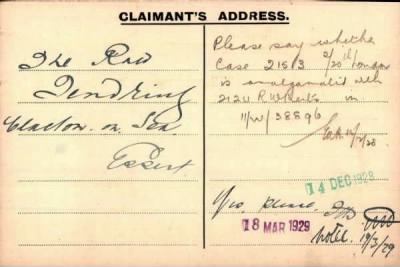 CLAIMANT'S ADDRESS.
The Row
Tendring
Clacton. on. Sea
Essex
Please say whether
Case 2153 2/20th London
is amalgamated with
2124 R. W. Kents. in
11/W/38896
14 DEC 1928
Yes, please.
18 MAR 1929
noted.
19/3/29